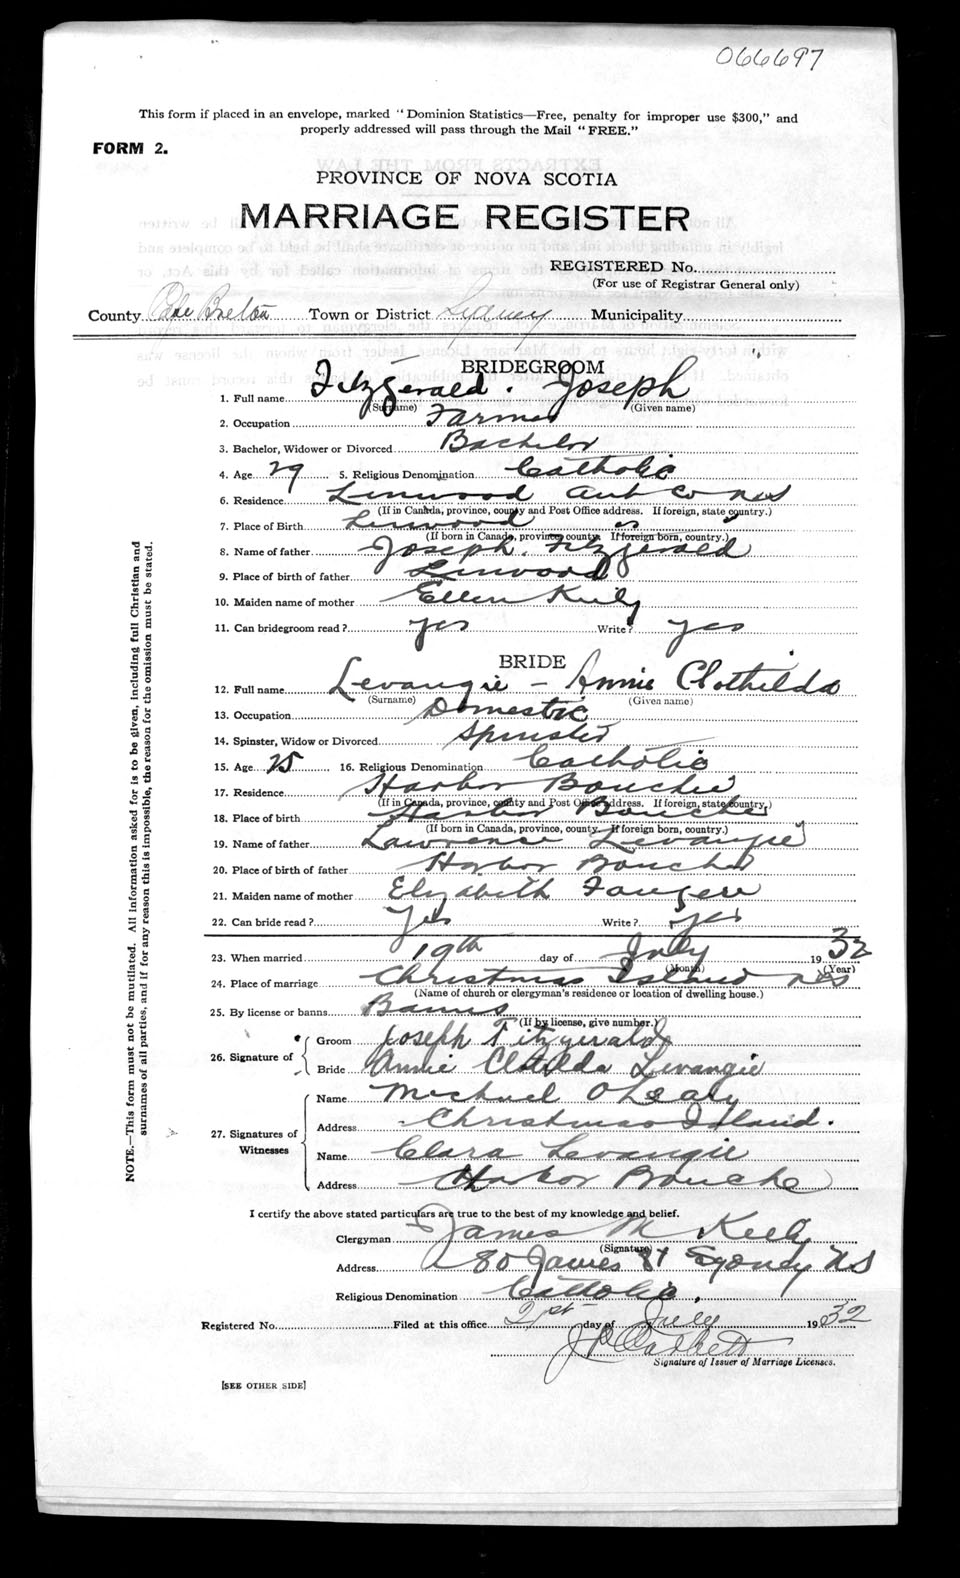 066697
This form if placed in an envelope, marked "Dominion Statistics—Free, penalty for improper use $300," and
properly addressed will pass through the Mail "FREE."
FORM 2.
PROVINCE OF NOVA SCOTIA
MARRIAGE REGISTER
REGISTERED No.
(For use of Registrar General only)
County Cape Breton Town or District Sydney Municipality
BRIDEGROOM
1. Full name Fitzgerald. Joseph
(Surname) (Given name)
2. Occupation Farmer
3. Bachelor, Widower or Divorced Bachelor
4. Age 29 5. Religious Denomination Catholic
6. Residence Linwood Ant Co NS
(If in Canada, province, county and Post Office address. If foreign, state country.)
7. Place of Birth Linwood " "
(If born in Canada, province, county. If foreign born, country.)
8. Name of father Joseph. Fitzgerald
9. Place of birth of father Linwood
10. Maiden name of mother Ellen Kiely
11. Can bridegroom read? yes Write? yes
BRIDE
12. Full name Levangie - Annie Clothilda
(Surname) (Given name)
13. Occupation Domestic
14. Spinster, Widow or Divorced Spinster
15. Age 25 16. Religious Denomination Catholic
17. Residence Harbor Bouche
(If in Canada, province, county and Post Office address. If foreign, state country.)
18. Place of birth Harbor Bouche
(If born in Canada, province, county. If foreign born, country.)
19. Name of father Lawrence Levangie
20. Place of birth of father Harbor Bouche
21. Maiden name of mother Elizabeth Fougere
22. Can bride read? Yes Write? yes
23. When married 19th day of July 1932
(Month) (Year)
24. Place of marriage Christmas Island NS
(Name of church or clergyman's residence or location of dwelling house.)
25. By license or banns Banns
(If by license, give number.)
26. Signature of Groom Joseph Fitzgerald
Bride Annie Clotilda Levangie
27. Signatures of Witnesses
Name Michael O'Leary
Address Christmas Island.
Name Clara Levangie
Address Harbor Bouche
I certify the above stated particulars are true to the best of my knowledge and belief.
Clergyman James M Kiely
(Signature)
Address 80 James St Sydney NS
Religious Denomination Catholic.
Registered No. Filed at this office 21st day of July 1932
Signature of Issuer of Marriage Licenses.
[SEE OTHER SIDE]
NOTE.—This form must not be mutilated. All information asked for is to be given, including full Christian and
surnames of all parties, and if for any reason this is impossible, the reason for the omission must be stated.